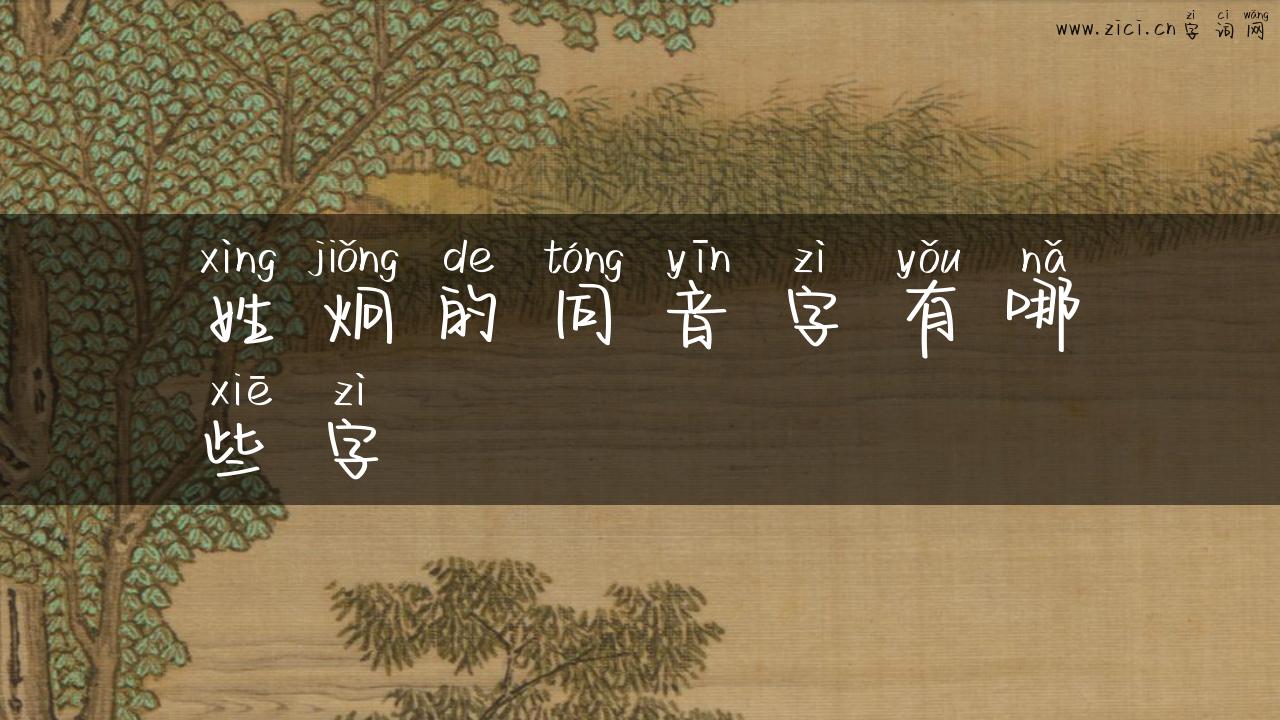 zì cí wǎng
www.zici.cn字词网
xìng jiǒng de tóng yīn zì yǒu nǎ
姓炯的同音字有哪
xiē zì
些字